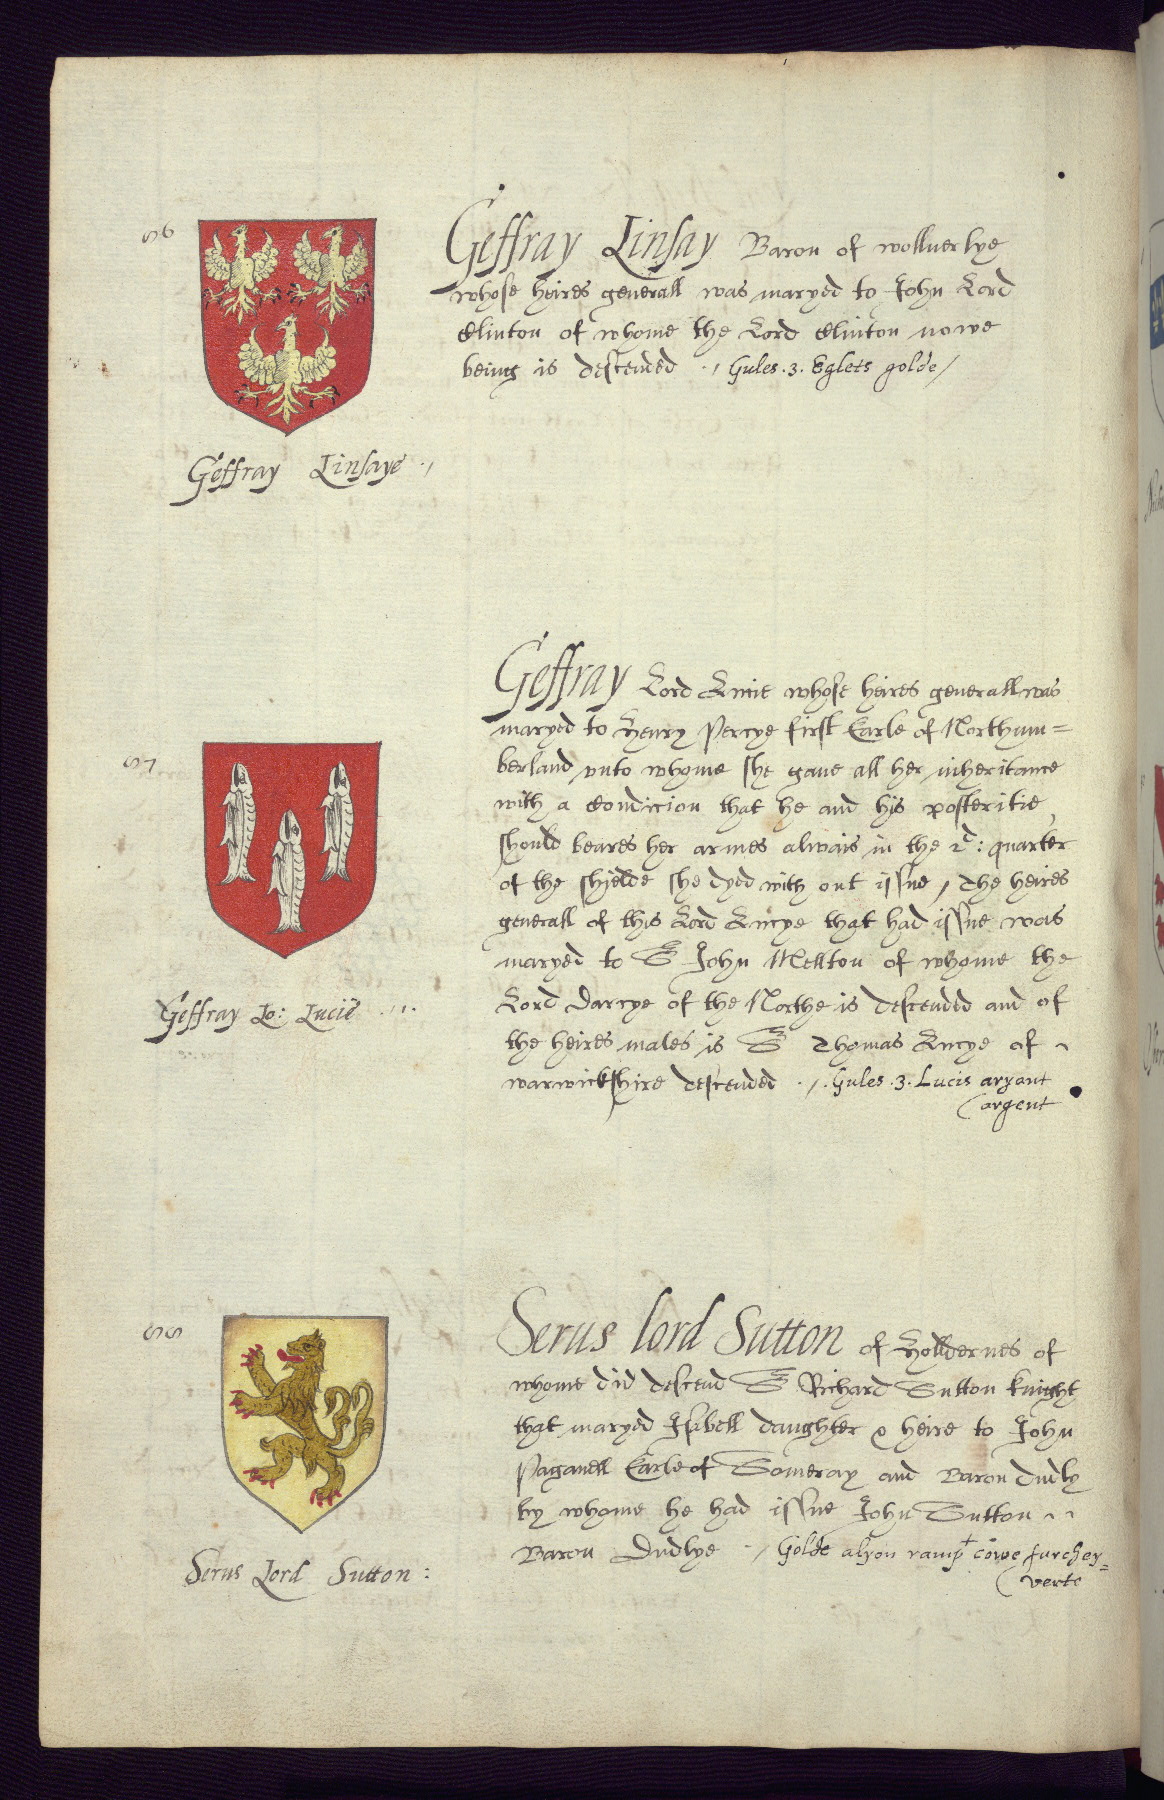 56
Geffray Linsay Baron of wolluerlye
whose heires generall was maryed to John Lord
Clinton of whome the Lord Clinton nowe
being is descended ./ Gules .3. Eglets golde /
Geffray Linsaye ./
57
Geffray Lord Lucie whose heires generall was
maryed to Henry Percye first Earle of Northum=
berland vnto whome she gaue all her inheritance
with a Condicion that he and his posteritie
should beares her armes alwais in the 2d: quarter
of the shielde she dyed with out issue / The heires
generall of this Lord Lucye that had issue was
maryed to Sr John Mellton of whome the
Lord Darcye of the Northe is descended and of
the heires males is Sr Thomas Lucye of ~
warwickshire descended ./. Gules .3. Lucis aryant
(argent
Geffray Lo: Lucie ...
58
Serus lord Sutton of Holldernes of
whome did descend Sr Richard Sutton knight
that maryed Isabell daughter & heire to John
Paganell Earle of Someray and Baron Dudly
by whome he had issue John Sutton ~ ~
Baron Dudlye ./ Golde a lyon ramp+ cowe furchey=
(verte
Serus Lord Sutton :